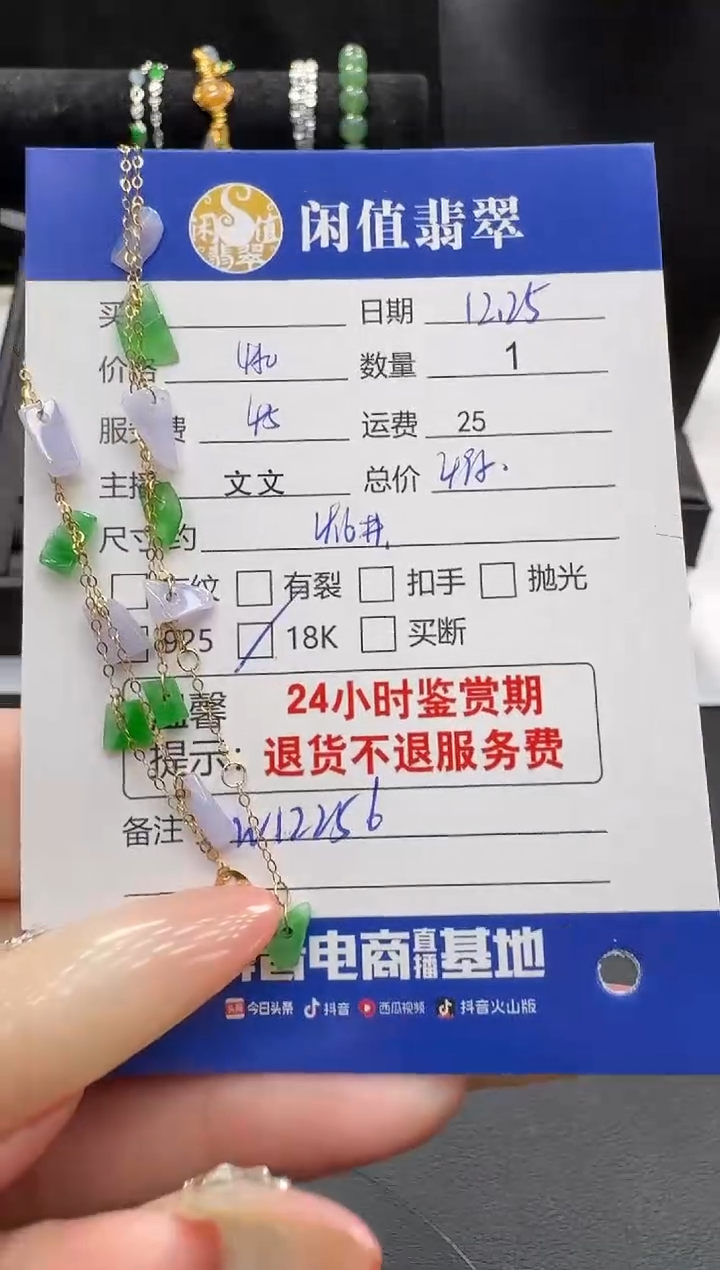 闲值翡翠
闲值翡翠
买 日期 12.25
价格 数量 1
服务费 45 运费 25
主播 文文 总价
尺寸约
纹 有裂 扣手 抛光
925 18K 买断
温馨 24小时鉴赏期
提示: 退货不退服务费
备注 W12256
抖音电商直播基地
今日头条 抖音 西瓜视频 抖音火山版